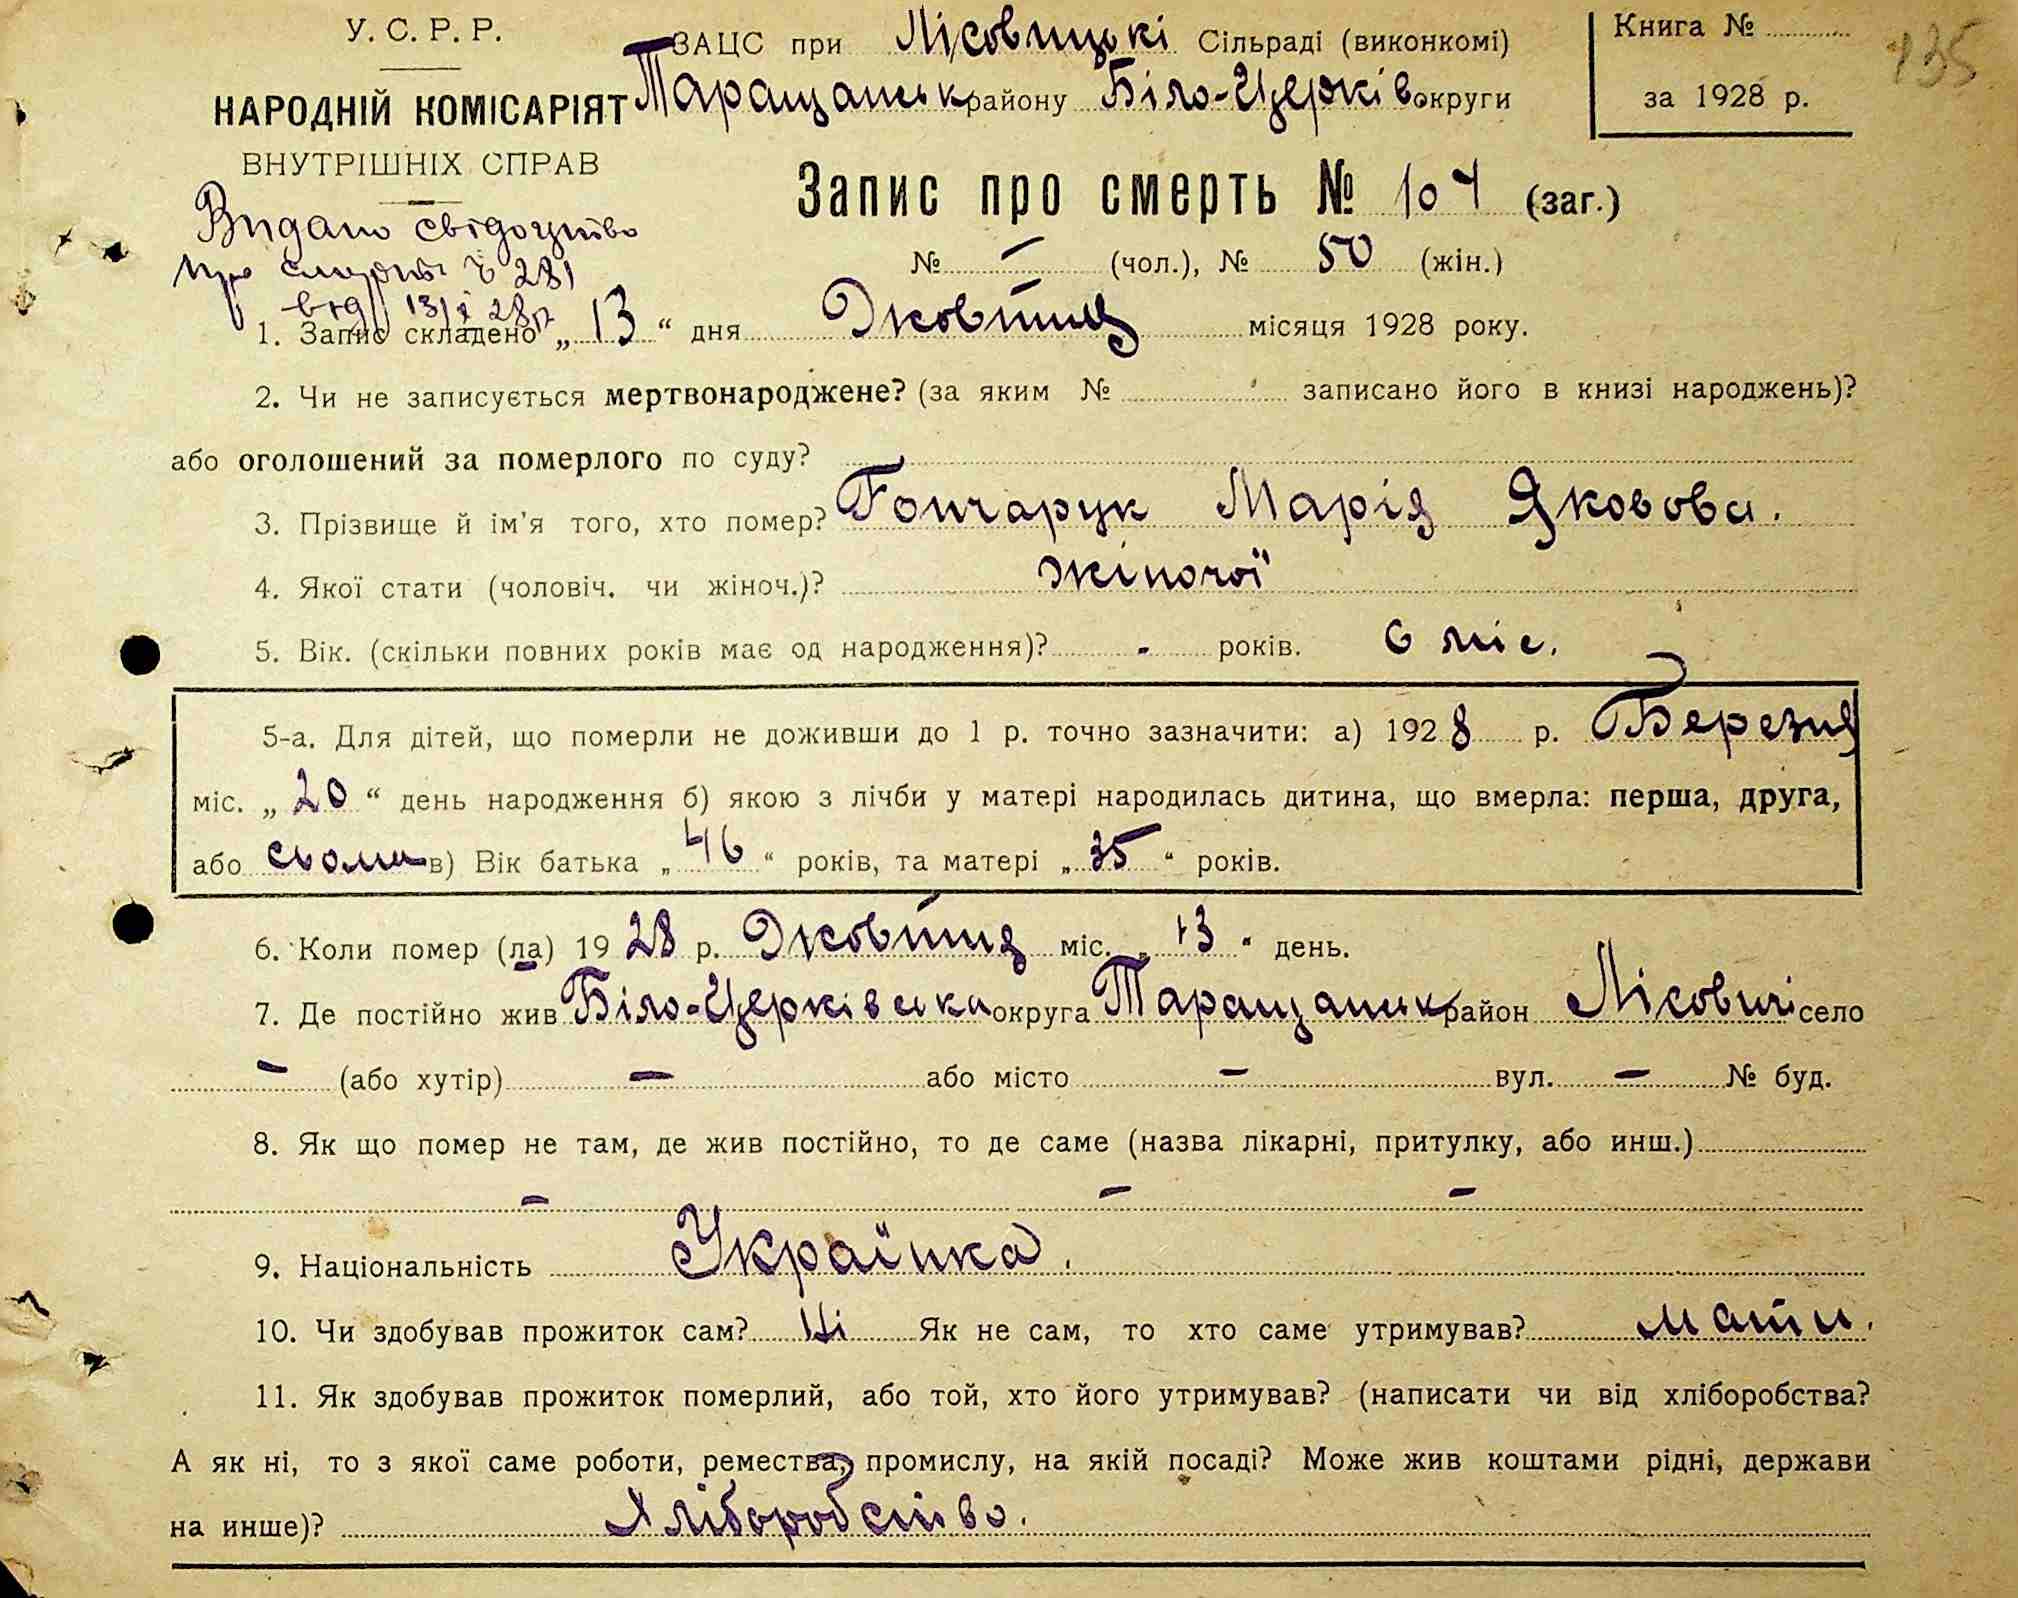 У. С. Р. Р.
ЗАЦС при Лісовицькі Сільраді (виконкомі)
Книга №
135
НАРОДНІЙ КОМІСАРІЯТ
Таращанськ району Біло-Церків округи
за 1928 р.
ВНУТРІШНІХ СПРАВ
Запис про смерть № 104 (заг.)
Видано свідоцтво
№ — (чол.), № 50 (жін.)
про смерть 281
від 13/X 28 р.
1. Запис складено „ 13 “ дня Жовтня місяця 1928 року.
2. Чи не записується мертвонароджене? (за яким № записано його в книзі народжень)?
або оголошений за померлого по суду?
3. Прізвище й ім'я того, хто помер? Гончарук Марія Яковова.
4. Якої стати (чоловіч. чи жіноч.)? жіночої
5. Вік. (скільки повних років має од народження)? - років. 6 міс.
5-а. Для дітей, що померли не доживши до 1 р. точно зазначити: а) 1928 р. Березня
міс. „ 20 “ день народження б) якою з лічби у матері народилась дитина, що вмерла: перша, друга,
або сьома в) Вік батька „ 46 “ років, та матері „ 35 “ років.
6. Коли помер (ла) 19 28 р. Жовтня міс. „ 13 “ день.
7. Де постійно жив Біло-Церківська округа Таращанськ район Лісовичі село
— (або хутір) — або місто — вул. — № буд.
8. Як що помер не там, де жив постійно, то де саме (назва лікарні, притулку, або инш.)
— — —
9. Національність Українка.
10. Чи здобував прожиток сам? Ні Як не сам, то хто саме утримував? мати.
11. Як здобував прожиток померлий, або той, хто його утримував? (написати чи від хліборобства?
А як ні, то з якої саме роботи, ремества, промислу, на якій посаді? Може жив коштами рідні, держави
на инше)? Хліборобство.